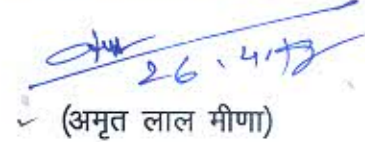 26.4.13
(अमृत लाल मीणा)